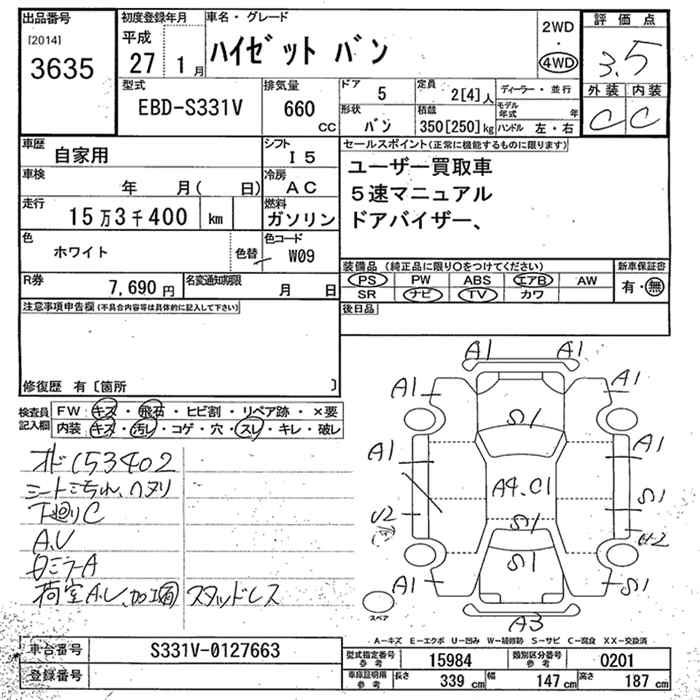 出品番号 初度登録年月 車名・グレード 2WD 評価点
[2014] 平成 ・
3635 27 1月 ハイゼット バン 4WD 3.5
型式 排気量 ドア 5 定員 2[4]人 ディーラー・並行 外装 内装
EBD-S331V 660 CC 形状 バン 積載 350[250]kg モデル年式 年 ハンドル 左・右 C C
車歴 自家用 シフト I5 セールスポイント(正常に機能するものに限ります)
車検 年 月( 日) 冷房 AC ユーザー買取車
走行 15万3千400 km 燃料 ガソリン 5速マニュアル
ドアバイザー、
色 ホワイト 色替 色コード W09
装備品(純正品に限り○をつけてください) 新車保証書
R券 7,690円 名変通知期限 月 日 PS PW ABS エアB AW 有・無
SR ナビ TV カワ
注意事項申告欄(不具合内容等は具体的に記入して下さい) 後日品
修復歴 有〔箇所 〕
検査員記入欄 FW:キズ・飛石・ヒビ割・リペア跡・×要
内装:キズ・汚レ・コゲ・穴・スレ・キレ・破レ
オド153402
シートこちれ、ヘタリ
下廻りC
A.U
白ミラーA
荷室A.U、加工有 スタッドレス
A1 A1
A1 A1
S1
A1 A1
A4.C1 S1
U2 S1 U2
S1
A1 S1
A3
スペア
A-キズ E-エクボ U-凹み W-補修跡 S-サビ C-腐食 XX-交換済
車台番号 S331V-0127663 型式指定番号 参考 15984 類別区分番号 参考 0201
登録番号 車庫証明用 参考 長さ 339 cm 幅 147 cm 高さ 187 cm